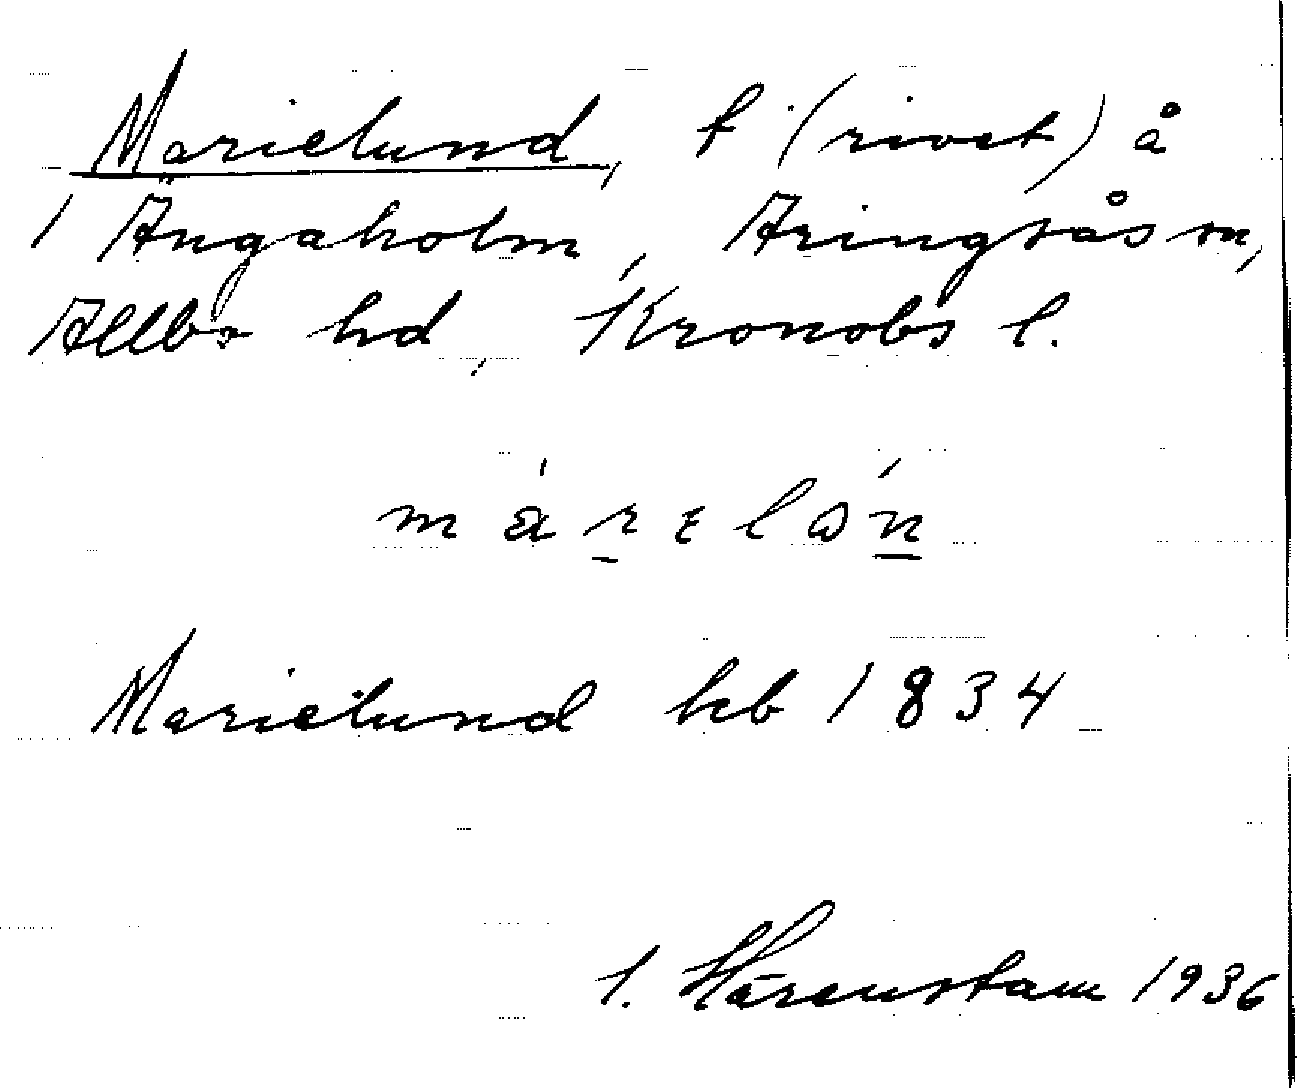 Marielund, t (rivet) å
1 Ängaholm, Aringsås sn,
Allbo hd, Kronobs l.
márɛlón
Marielund hb 1834
1. Hårenstam 1936